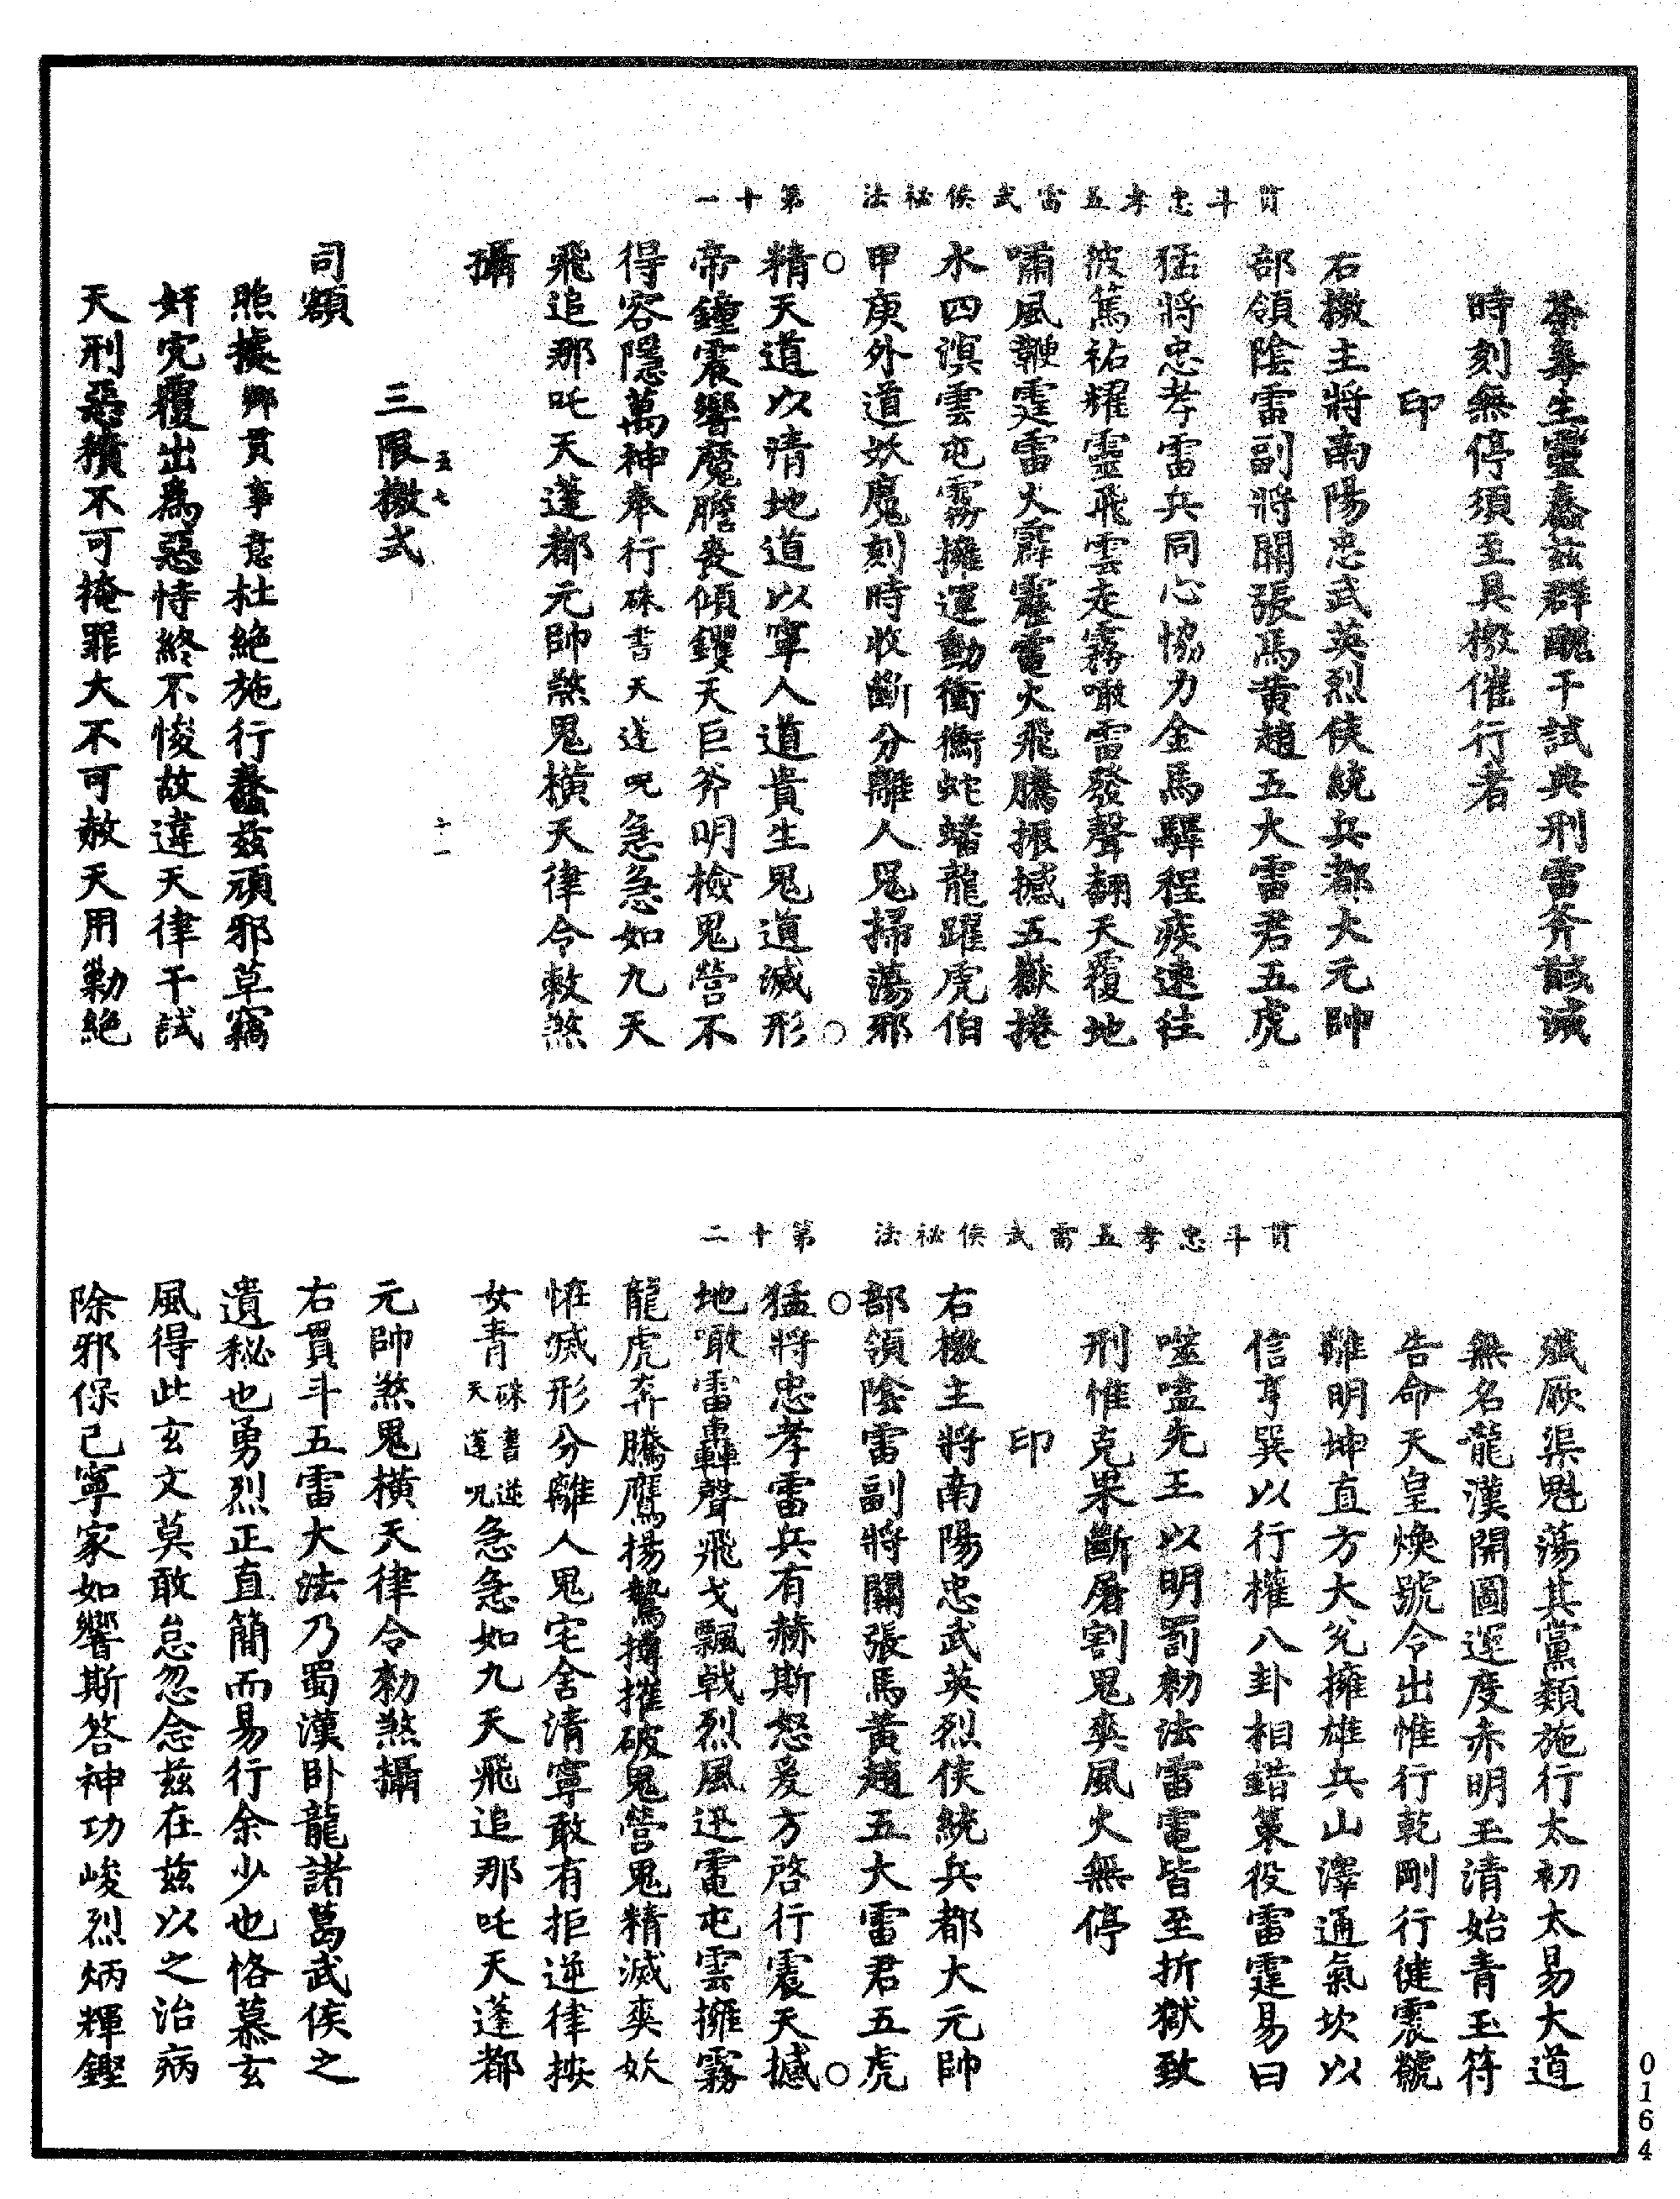 貫斗忠孝五雷武侯祕法　第十一
荼毒生靈蠢茲群醜干試典刑雷斧誅滅
時刻無停須至具檄催行者
印
右檄主將南陽忠武英烈侯統兵都大元帥
部領陰雷副將關張馬黃趙五大雷君五虎
猛將忠孝雷兵同心恊力金馬驛程疾速往
彼篤祐耀靈飛雲走霧噉雷發聲翻天覆地
嘯風鞭霆雷火霹靂電火飛騰振撼五嶽捲
水四溟雲屯霧擁運動衝衝蛇蟠龍躍虎伯
甲庚外道妖魔刻時收斷分離人鬼掃蕩邪
精天道以清地道以寧人道貴生鬼道滅形
帝鐘震響魔膽喪傾鑊天巨斧明檢鬼營不
得容隱萬神奉行硃書天蓬呪急急如九天
飛追那吒天蓬都元帥煞鬼橫天律令敕煞
攝
三限檄式
五七
十一
司額
照據鄉貫事意杜絕施行蠢茲頑邪草竊
奸宄覆出為惡恃終不悛故違天律干試
天刑惡積不可掩罪大不可赦天用勦絕
貫斗忠孝五雷武侯祕法　第十二
殲厥渠魁蕩其黨類施行太初太易大道
無名龍漢開圖運度赤明玉清始青玉符
告命天皇煥號令出惟行乾剛行健震虩
離明坤直方大兊擁雄兵山澤通氣坎以
信亨巽以行權八卦相錯策役雷霆易曰
噬嗑先王以明罰勑法雷電皆至折獄致
刑惟克果斷屠割鬼爽風火無停
印
右檄主將南陽忠武英烈侯統兵都大元帥
部領陰雷副將關張馬黃趙五大雷君五虎
猛將忠孝雷兵有赫斯怒爰方啓行震天撼
地噉雷轟聲飛戈飄戟烈風迅電屯雲擁霧
龍虎奔騰鷹揚鷙摶摧破鬼營鬼精滅爽妖
惟滅形分離人鬼宅舍清寧敢有拒逆律按
女青硃書逆天蓬呪急急如九天飛追那吒天蓬都
元帥煞鬼橫天律令勑煞攝
右貫斗五雷大法乃蜀漢卧龍諸葛武侯之
遺秘也勇烈正直簡而易行余少也恪慕玄
風得此玄文莫敢怠忽念茲在茲以之治病
除邪保己寧家如響斯答神功峻烈炳輝鏗
0164